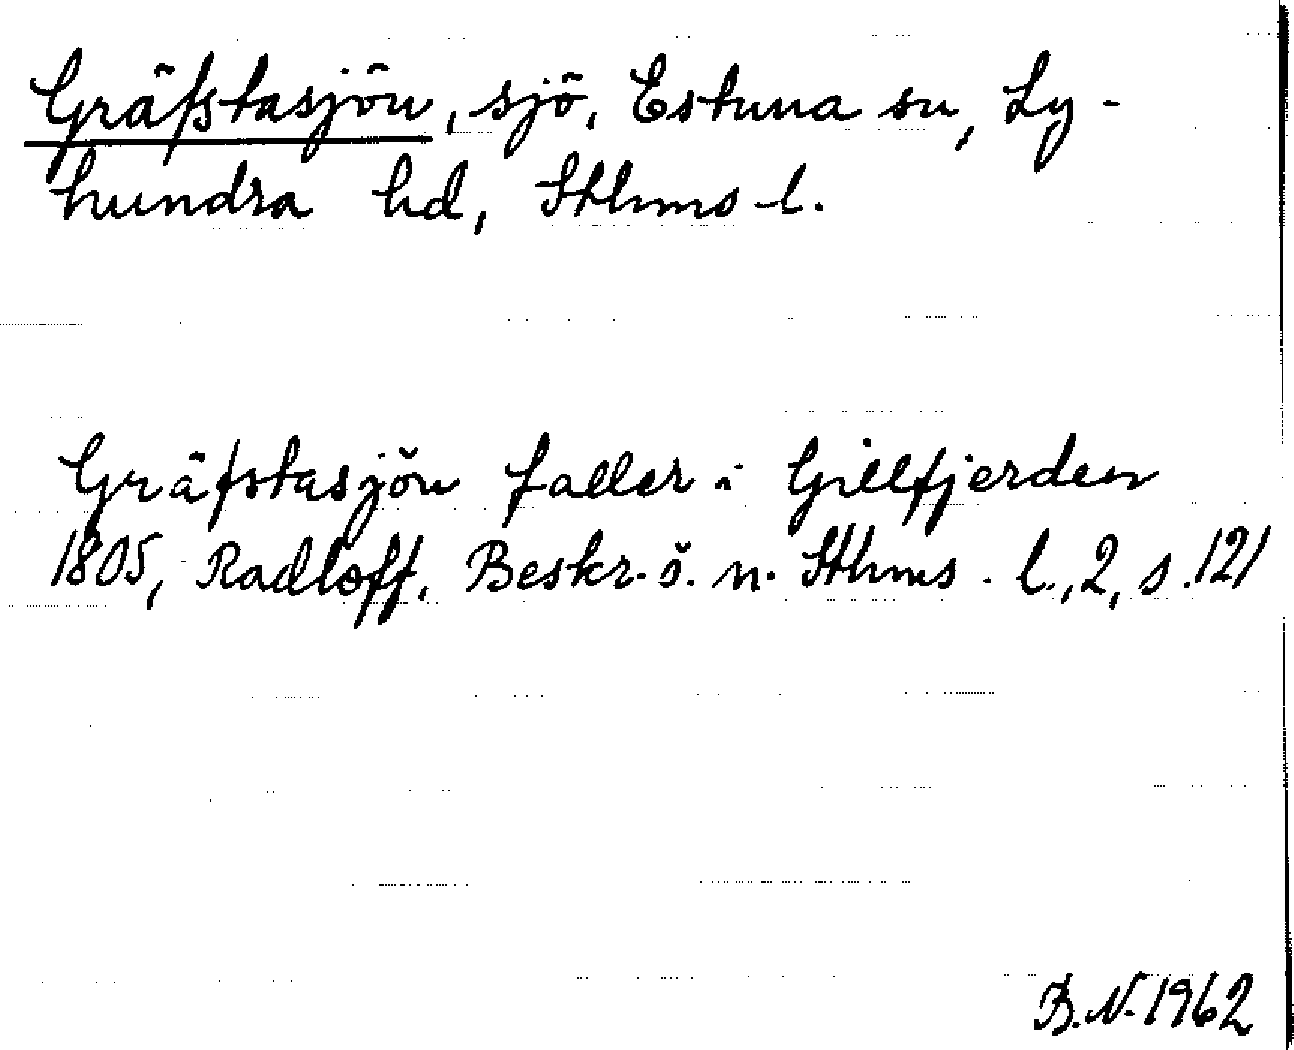 Gräfstasjön, sjö, Estuna sn, Ly-
hundra hd, Sthms l.
Gräfstasjön faller i Gillfjerden
1805, Radloff, Beskr. ö. n. Sthms. l., 2, s. 121
B. N. 1962